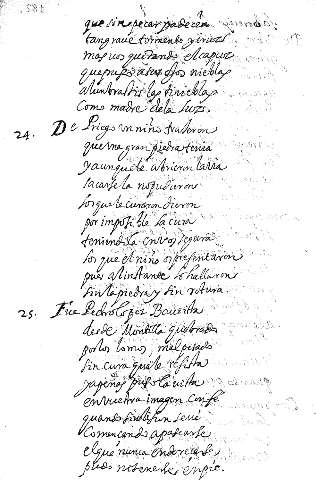 que sin pecar padecen
tan graue tormento y
mas vos quitando el capuz
que puso a sus ojos nieblas
alumbrastis las tinieblas
Como madre de la luz.
24. De Priego un niño truxeron
que una gran piedra tenia
y aunque le abrieron la via
sacarsela no pudieron
los que le curaron dieron
por imposible la cura
teniendola en vos segura
los que el niño os presentaron
pues al instante se hallaron
sin la piedra y sin rotura.
25. Fue Pedro Lopez Bautista
desde Montilla quebrado
por los lomos, mal pesado
sin cura que le resista
y apenas puso la vista
en vuestra imagen con fe
quando sin
Començando a
el que nunca
pudo tenerse en pie.